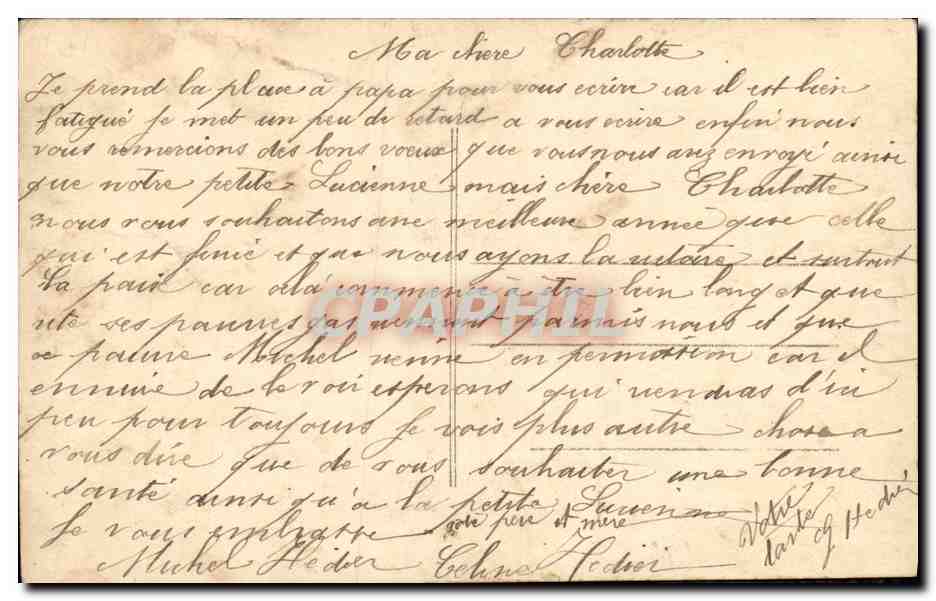 Ma chère Charlotte
Je prend la place à papa pour vous écrire car il est bien
fatigué je met un peu de retard a vous écrire enfin nous
vous remercions des bons voeux que vous nous avez envoyé ainsi
que notre petite Lucienne mais chère Charlotte
nous vous souhaitons une meilleure année que celle
qui est finie et que nous ayons la victoire et surtout
la paix car cela commence à être bien long et que
ses pauvres gas viennent parmis nous et que
ce pauvre Michel vienne en permission car il
ennuie de le voir esperons qui viendras d'ici
peu pour toujours je vois plus autre chose a
vous dire que de vous souhaiter une bonne
santé ainsi qu'a la petite Lucienne
Je vous embrasse votre père et mère
Michel Hédier Celine Hedier
Votre
tante
G Hedier
CPAPHIL